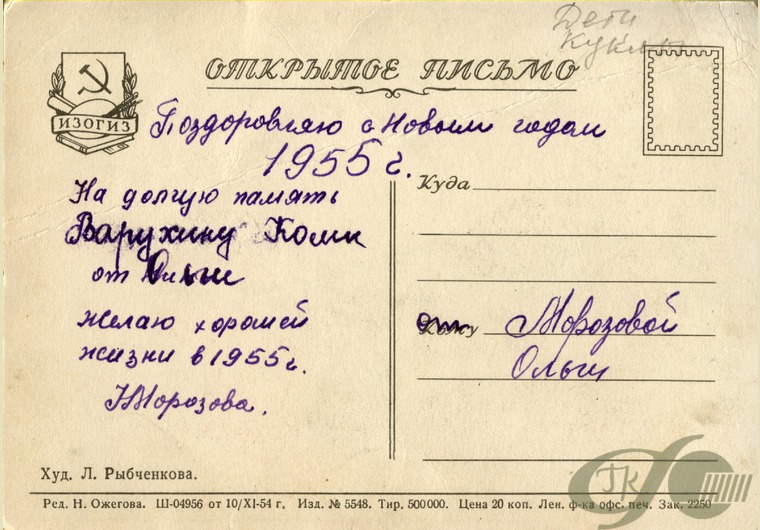 Дети
Куклы
ОТКРЫТОЕ ПИСЬМО
ИЗОГИЗ
Поздоровляю с Новым годом
1955 г.
На долгую память
Варухину Коми
от Ольги
желаю хорошей
жизни в 1955 г.
Морозова.
Куда
от Морозовой
Ольги
Худ. Л. Рыбченкова.
Ред. Н. Ожегова. Ш-04956 от 10/XI-54 г. Изд. № 5548. Тир. 500000. Цена 20 коп. Лен. ф-ка офс. печ. Зак. 2250
ГК